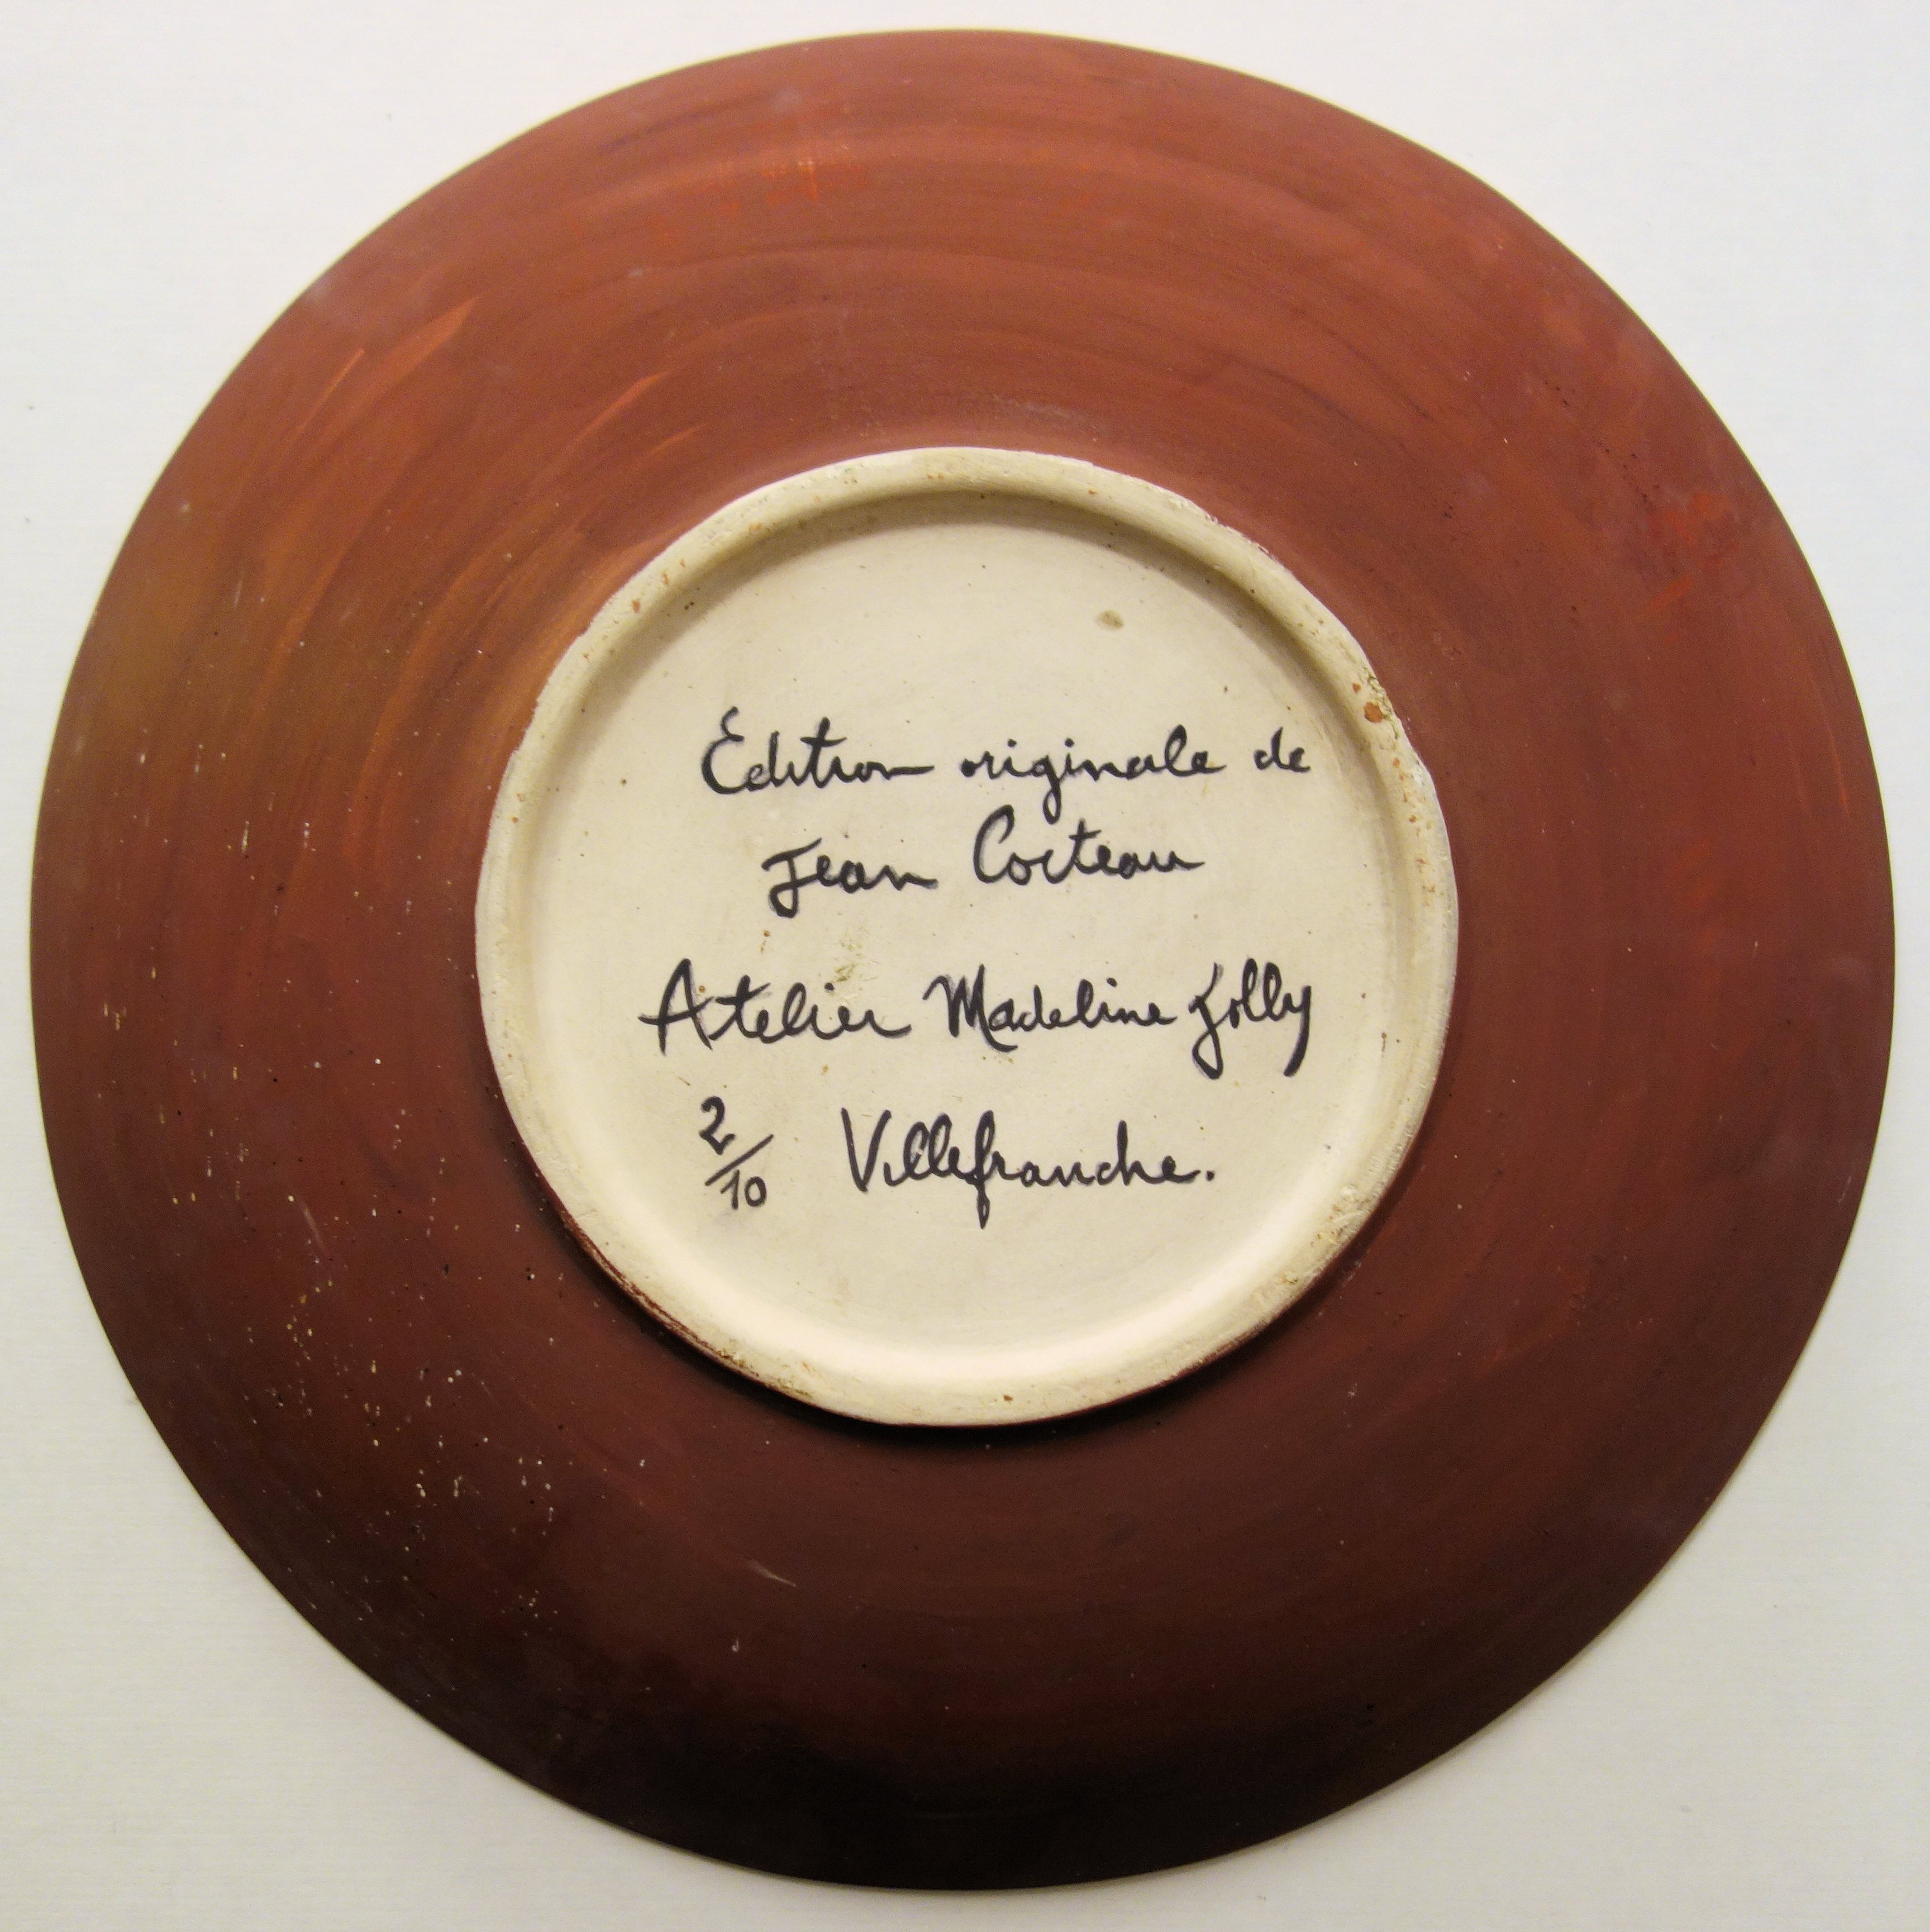 Édition originale de
Jean Cocteau
Atelier Madeline Jolly
2/10 Villefranche.